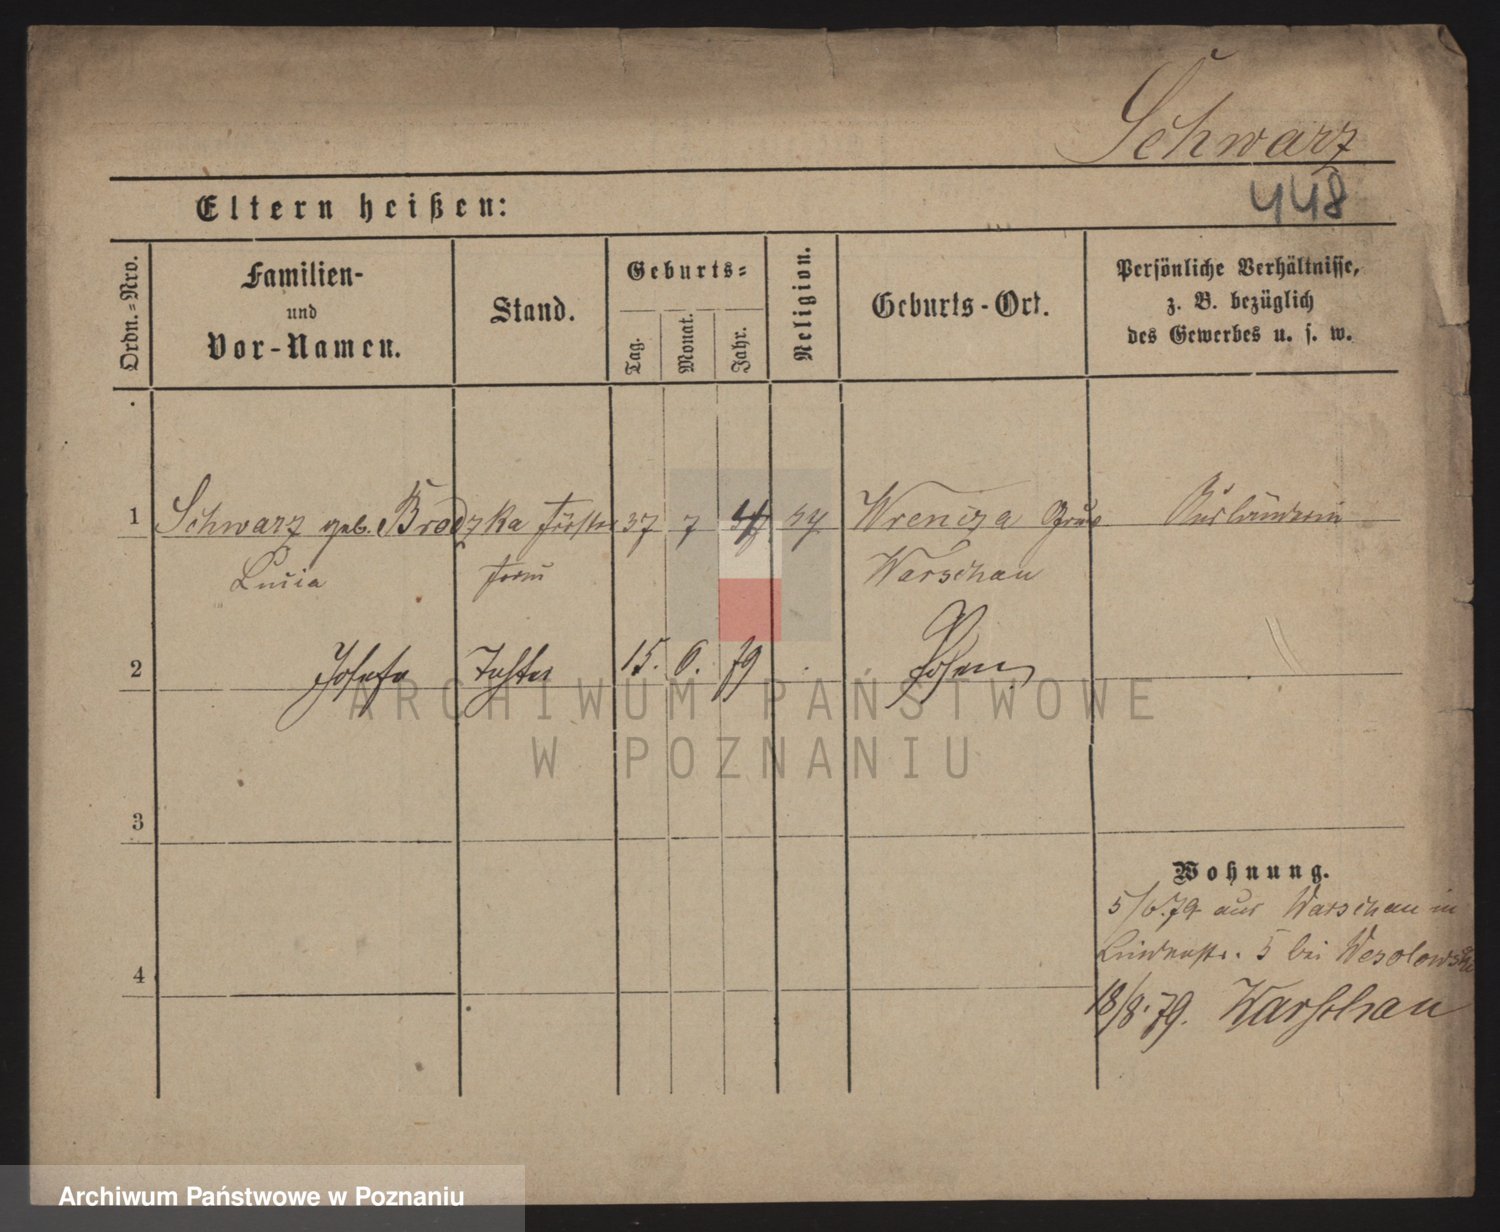 Schwarz
448
Eltern heißen:
Ordn.-Nro.
Familien-
und
Vor-Namen.
Stand.
Geburts-
Tag.
Monat.
Jahr.
Religion.
Geburts-Ort.
Persönliche Verhältnisse,
z. B. bezüglich
des Gewerbes u. s. w.
1 Schwarz geb. Brodzka Förster 7 Wreniza Ausländerin
Lucia frau Warschau
2 Josefa Tochter 15. 6. 79 Posen
ARCHIWUM PAŃSTWOWE
W POZNANIU
3
Wohnung.
5/6.79 aus Warschau in
Lindenstr. 5 bei Wesolowski
4
18/8.79. Warschau
Archiwum Państwowe w Poznaniu